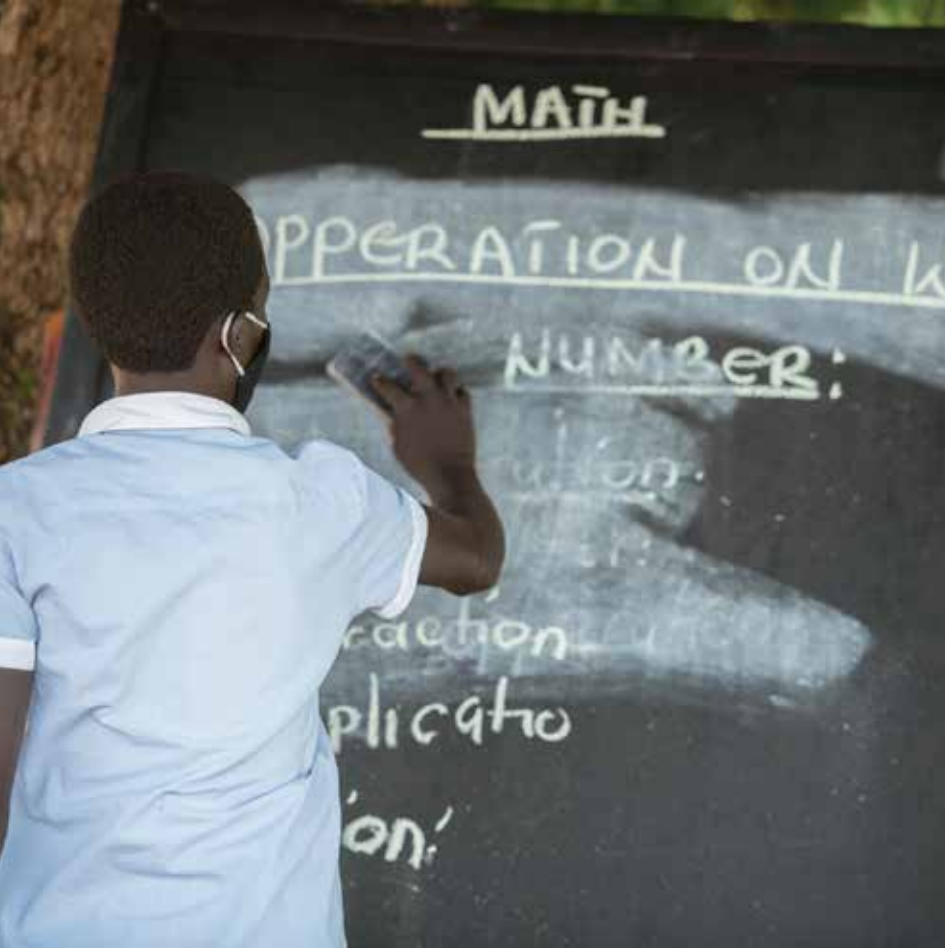 MATH
OPPERATION ON W
NUMBER:
raction
plicatio
ion: